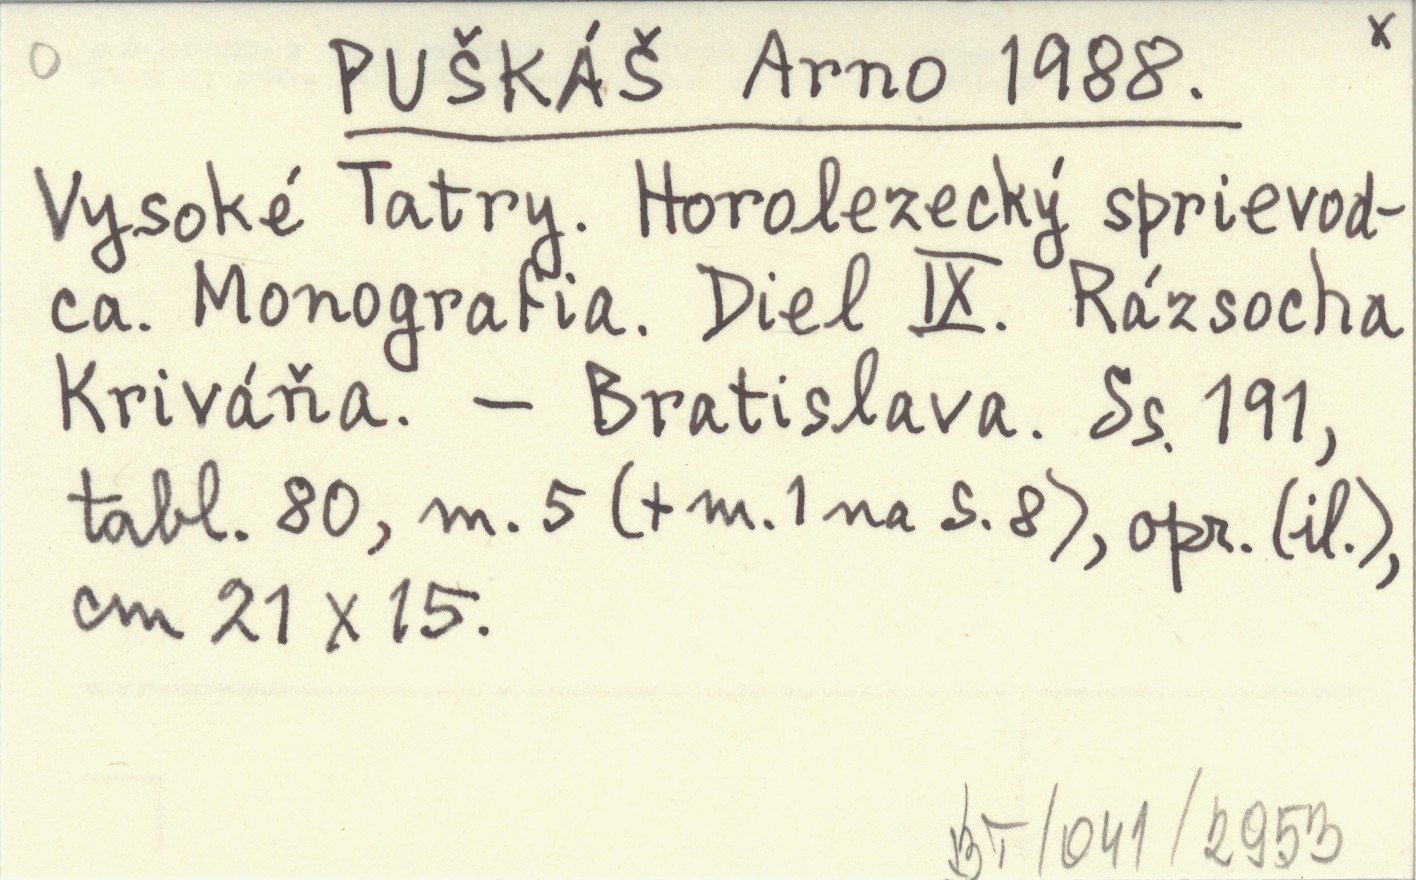 O
x
PUŠKÁŠ Arno 1988.
Vysoké Tatry. Horolezecký sprievod-
ca. Monografia. Diel IX. Rázsocha
Kriváňa. – Bratislava. Ss. 191,
tabl. 80, m. 5 (+ m. 1 na s. 8), opr. (il.),
cm 21 x 15.
BT/041/2953